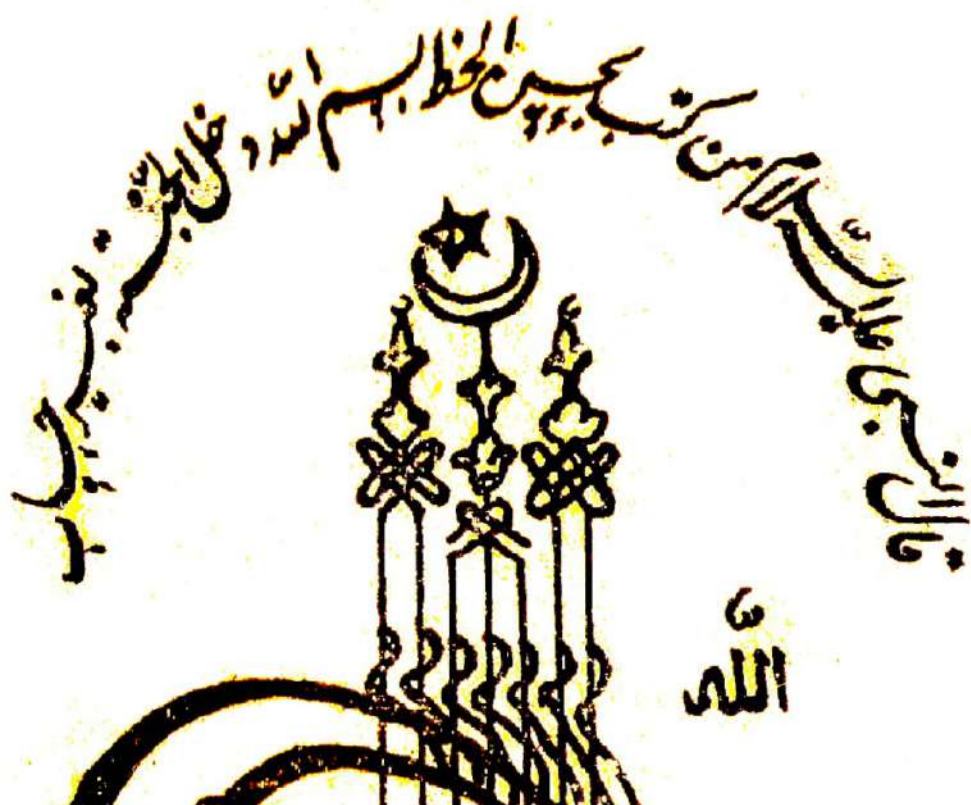 قال النبى عليه السلام من كتب بحسن الخط بسم اللّه دخل الجنة بغير حساب
اللّه